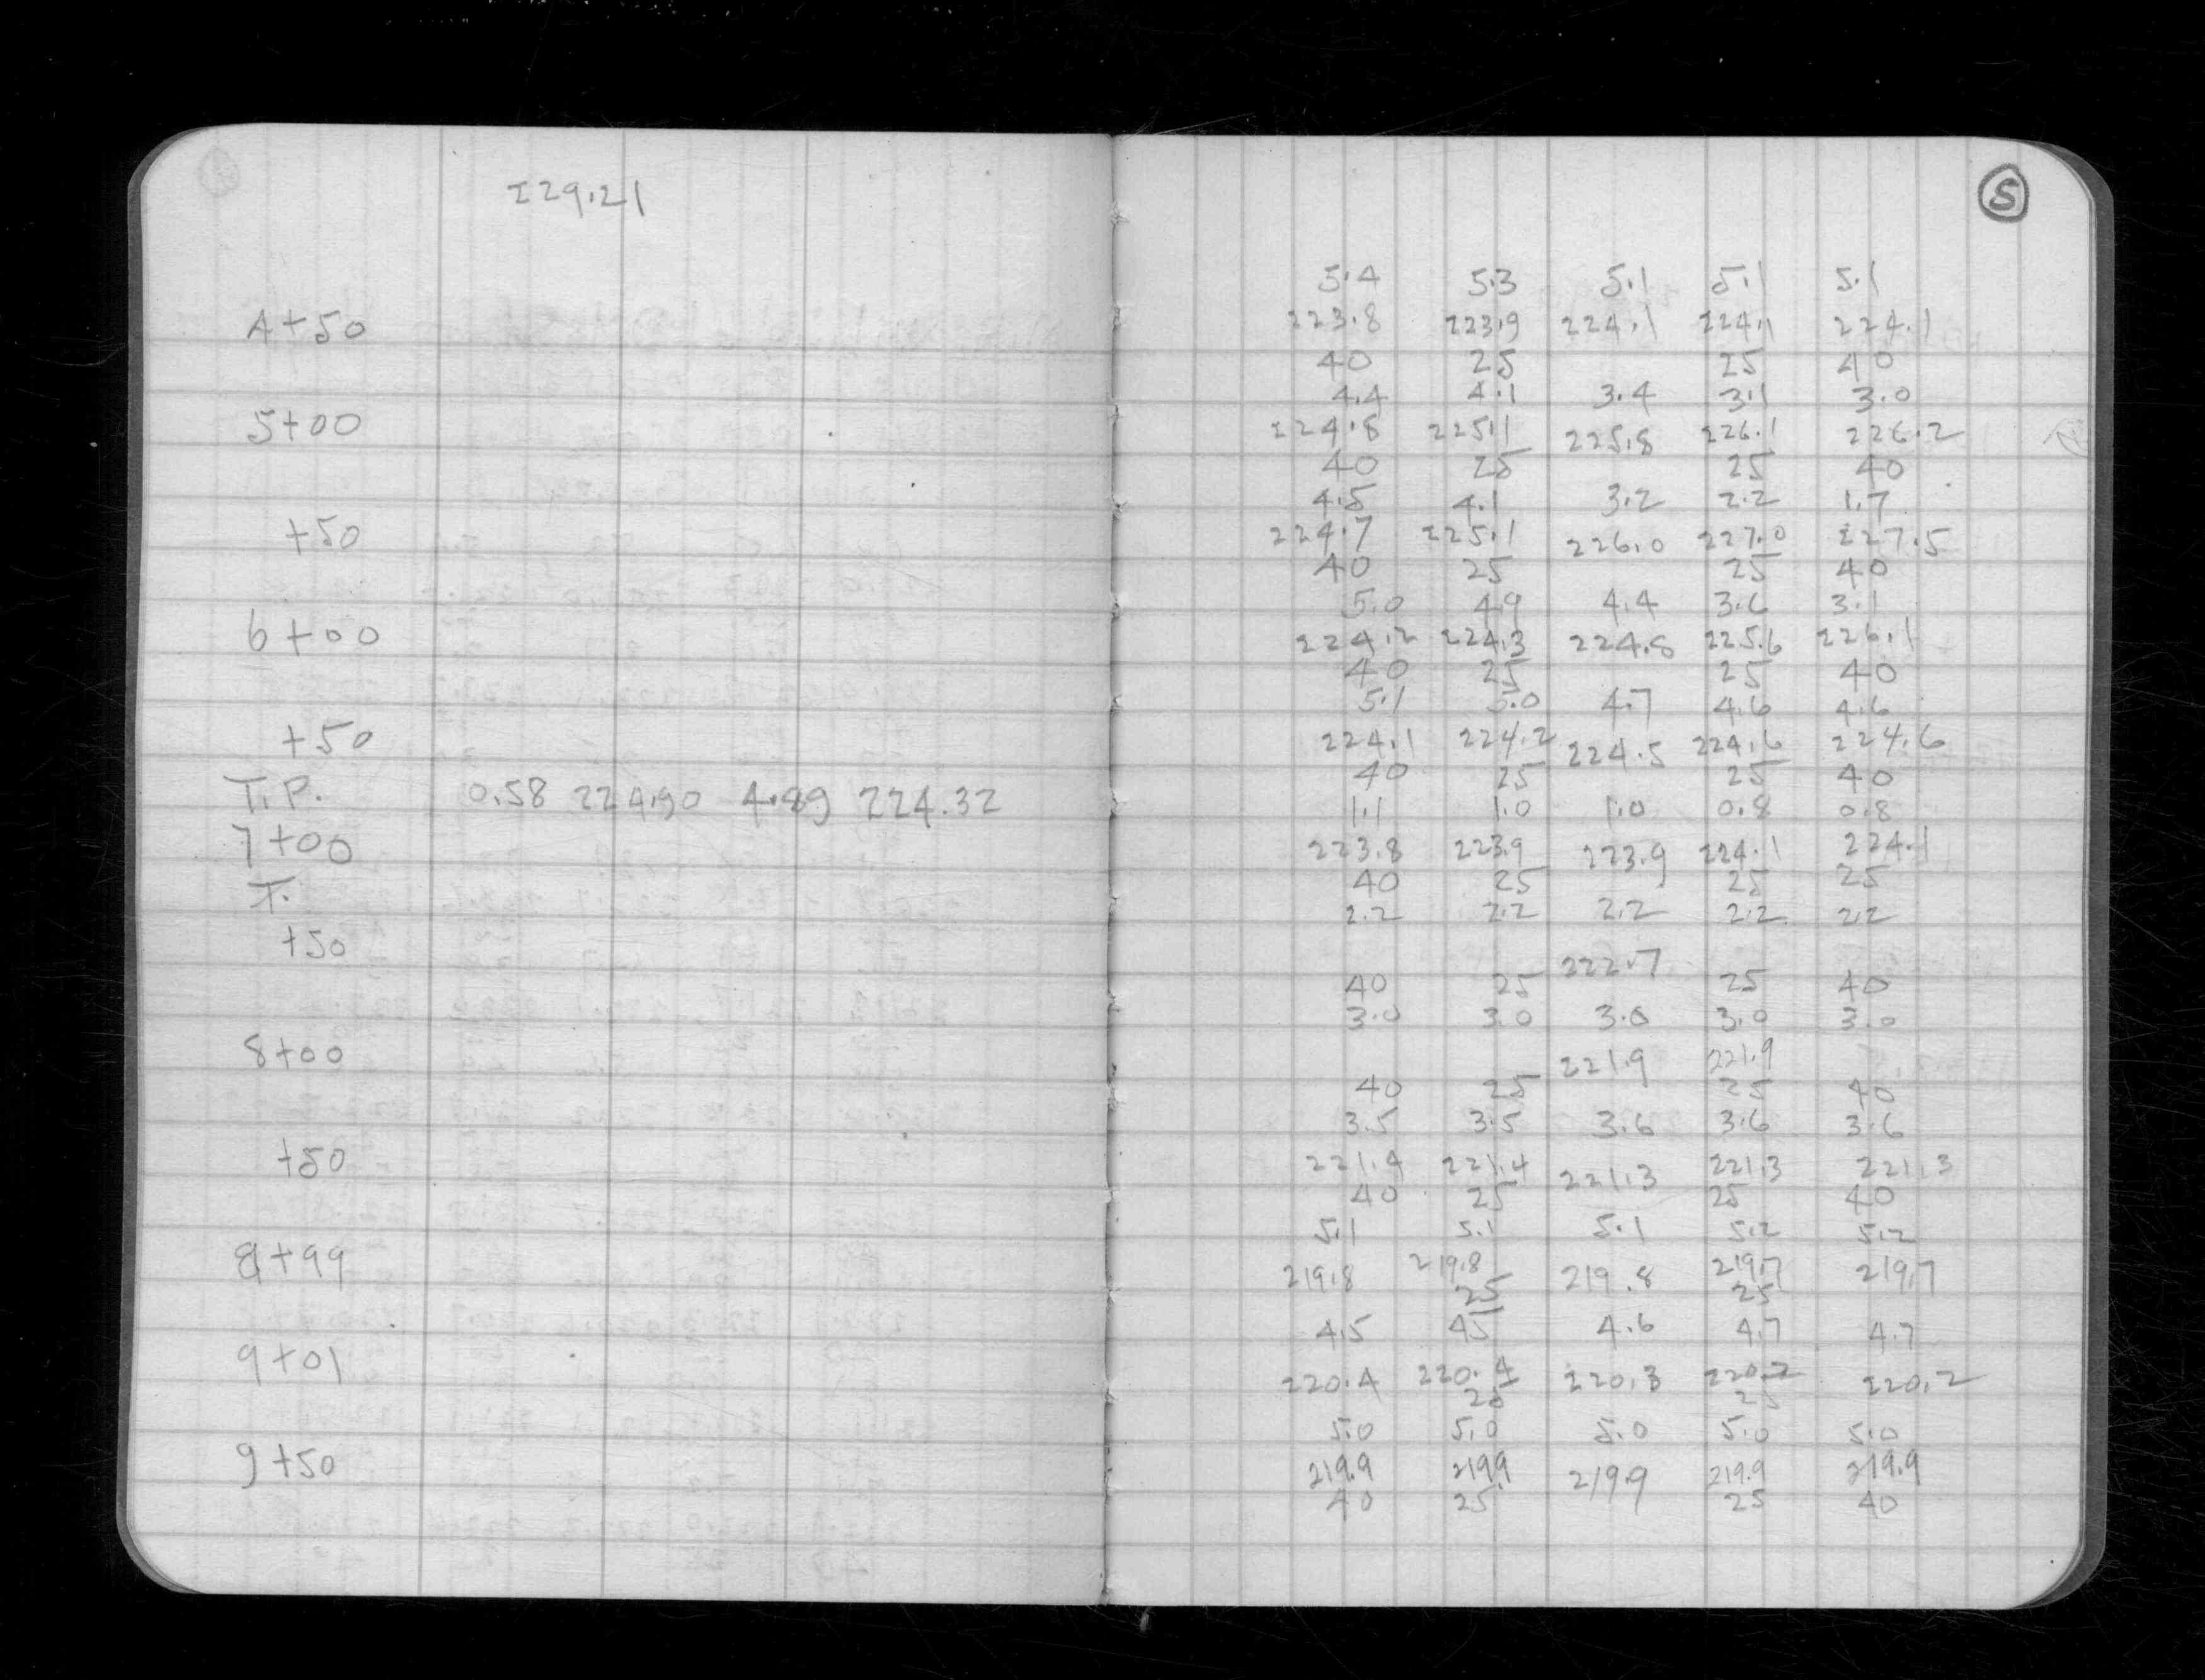 229.21
4+50
5+00
+50
6+00
+50
T.P. 0.58 224.90 4.89 224.32
7+00
T.
+50
8+00
+50
8+99
9+01
9+50
5
5.4 5.3 5.1 5.1 5.1
223.8 223.9 224.1 224.1 224.1
40 25 25 40
4.4 4.1 3.4 3.1 3.0
224.8 225.1 225.8 226.1 226.2
40 25 25 40
4.5 4.1 3.2 2.2 1.7
224.7 225.1 226.0 227.0 227.5
40 25 25 40
5.0 4.9 4.4 3.6 3.1
224.2 224.3 224.8 225.6 226.1
40 25 25 40
5.1 5.0 4.7 4.6 4.6
224.1 224.2 224.5 224.6 224.6
40 25 25 40
1.1 1.0 1.0 0.8 0.8
223.8 223.9 223.9 224.1 224.1
40 25 25 25
2.2 2.2 2.2 2.2 2.2
222.7
40 25 25 40
3.0 3.0 3.0 3.0 3.0
221.9 221.9
40 25 25 40
3.5 3.5 3.6 3.6 3.6
221.4 221.4 221.3 221.3 221.3
40 25 25 40
5.1 5.1 5.1 5.2 5.2
219.8 219.8 219.8 219.7 219.7
25 25
4.5 4.5 4.6 4.7 4.7
220.4 220.4 220.3 220.2 220.2
25 25
5.0 5.0 5.0 5.0 5.0
219.9 219.9 219.9 219.9 219.9
40 25 25 40